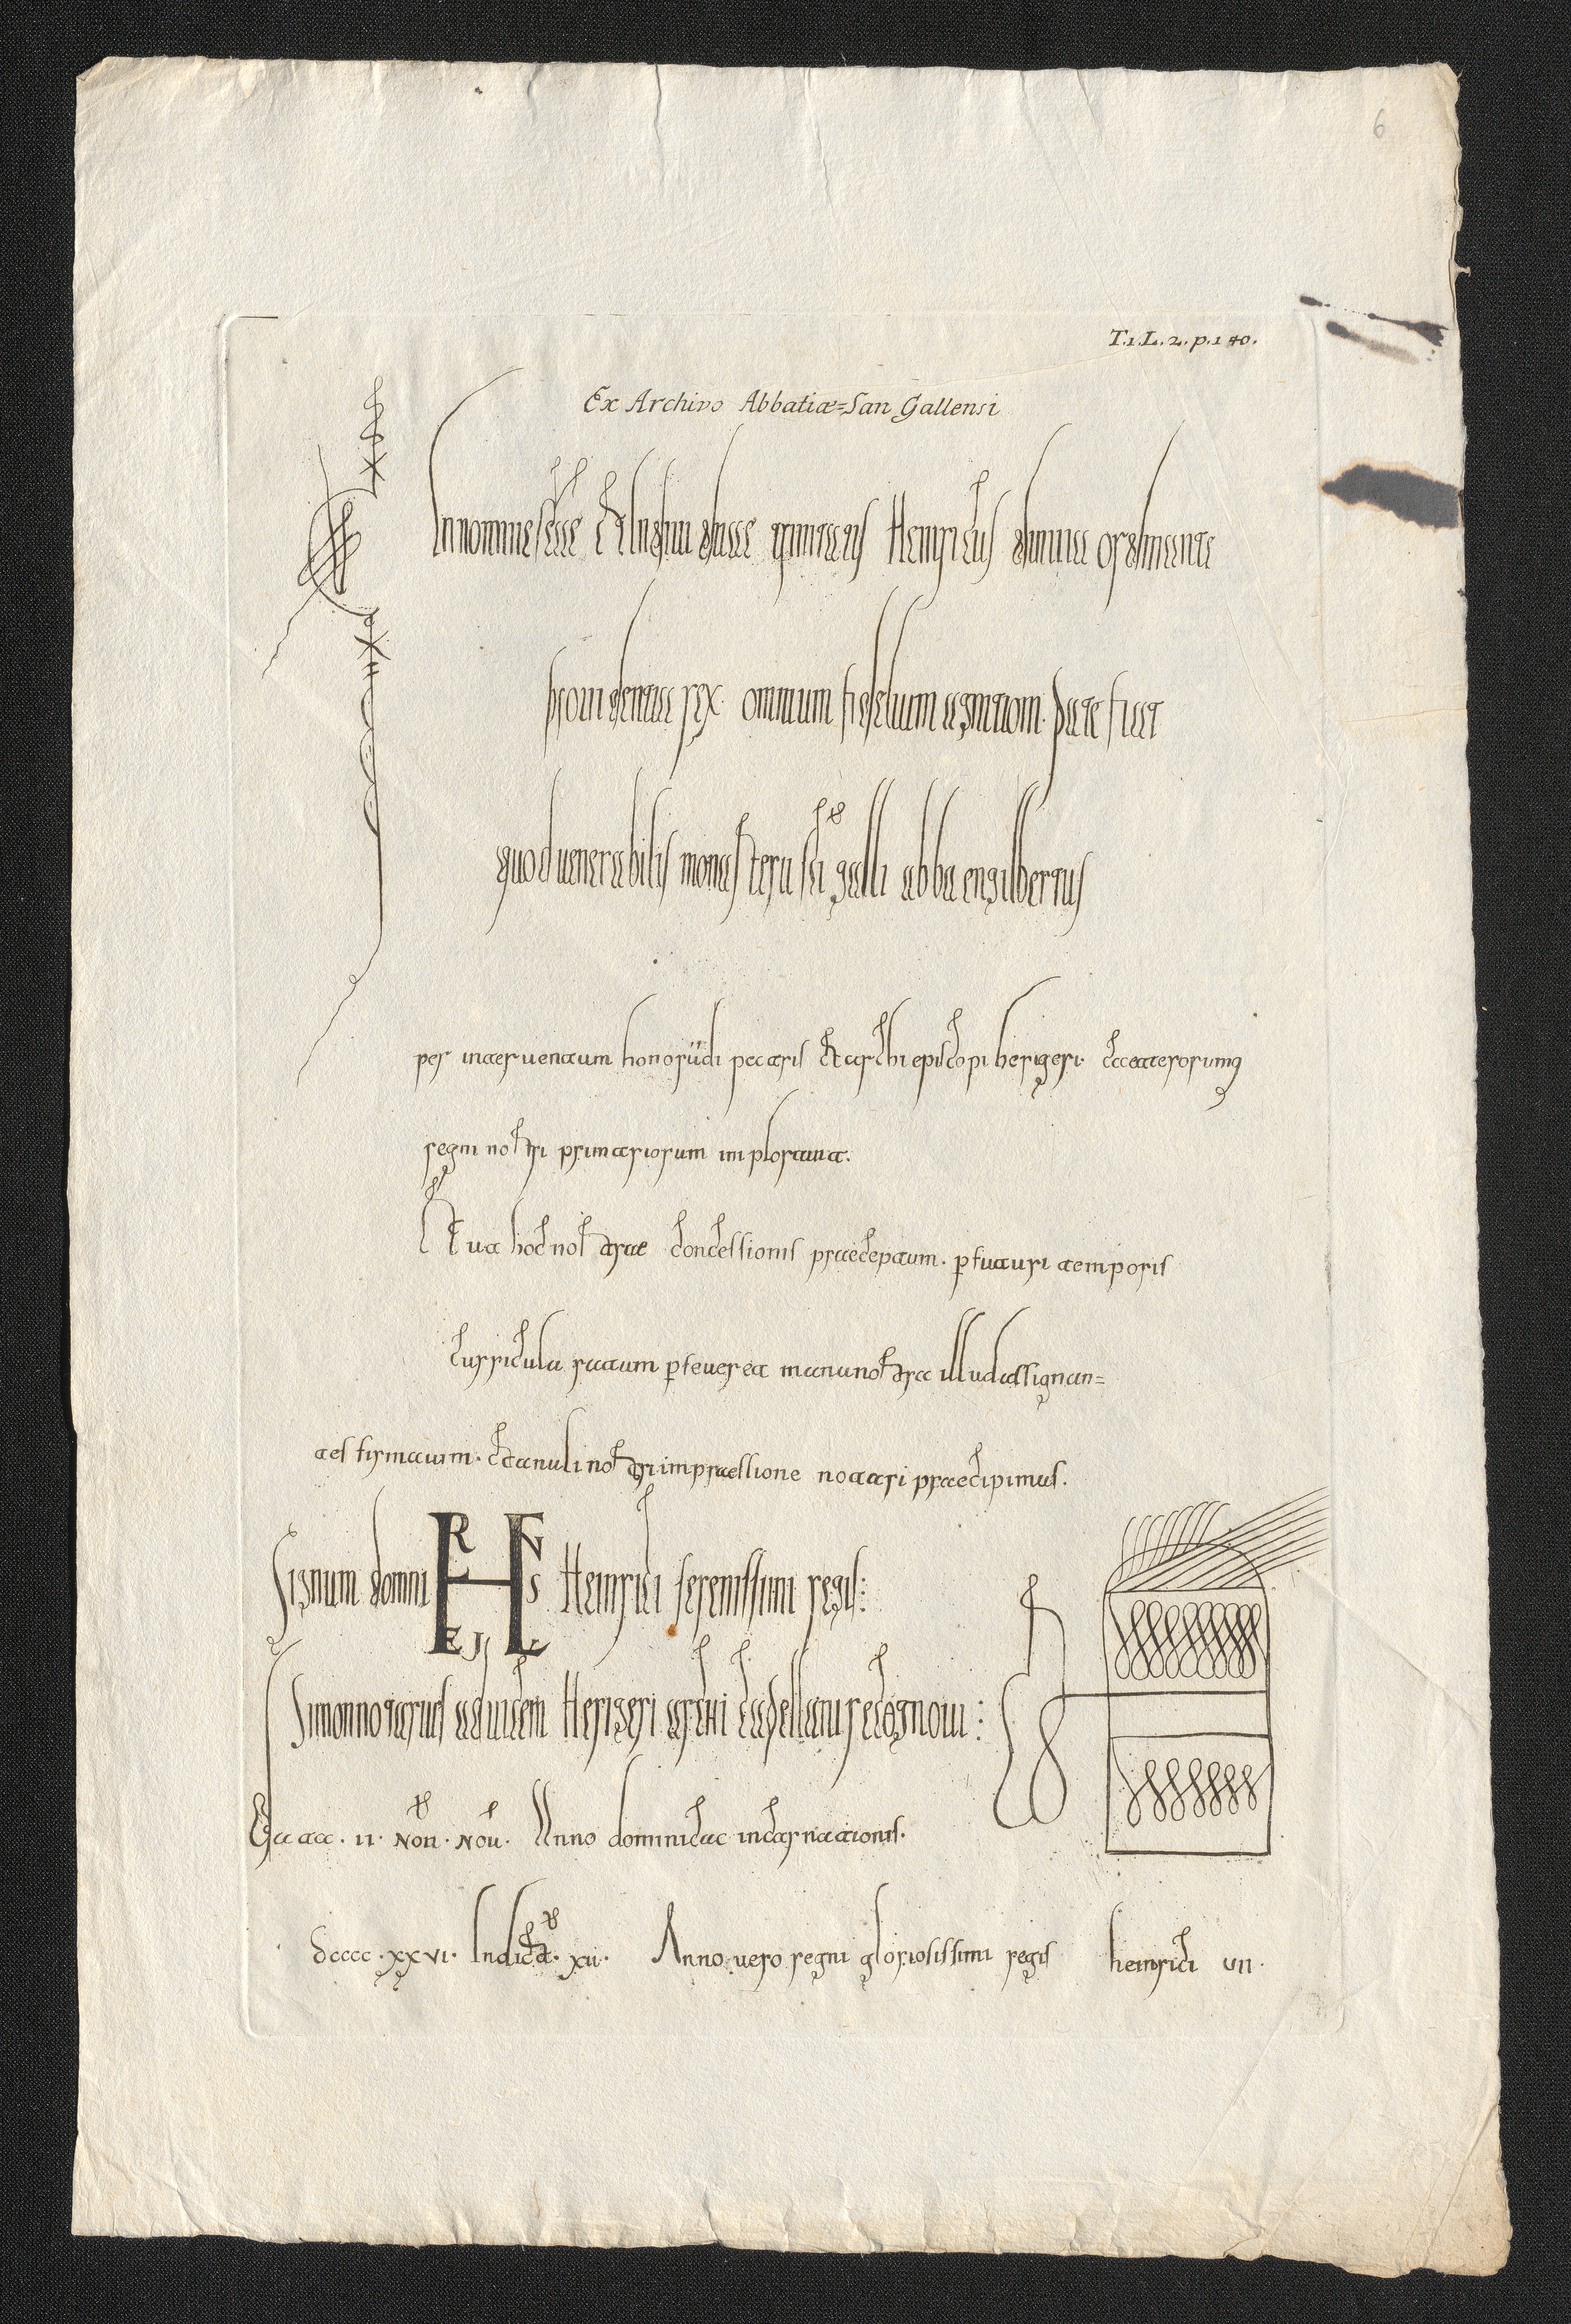 6
T.1.L.2.p.140.
Ex Archivo Abbatiæ=San Gallensi
In nomine sc̅ae et individuae trinitatis Heinricus divina ordinante
providentia rex omnium fidelium agnitioni. pate fiat
quod venerabilis monasterii sc̅i galli abba engilbertus
per interventum honorandi patris et archiepiscopi herigeri. caeterorumq;
regni nostri primariorum imploravit.
Et ut hoc nostrae concessionis praeceptum. p futuri temporis
curricula ratum pseveret manu nostra illud assignan=
tes firmavim. et anuli nostri impraessione notari praecipimus.
Signum domni Heinrici serenissimi regis:
Simon notarius advicem Herigeri archicapellani recognovi:
Data. II. Non. Nov. Anno dominicae incarnationis.
dcccc.xxvi. Indict. xii. Anno vero regni gloriosissimi regis heinrici vii.